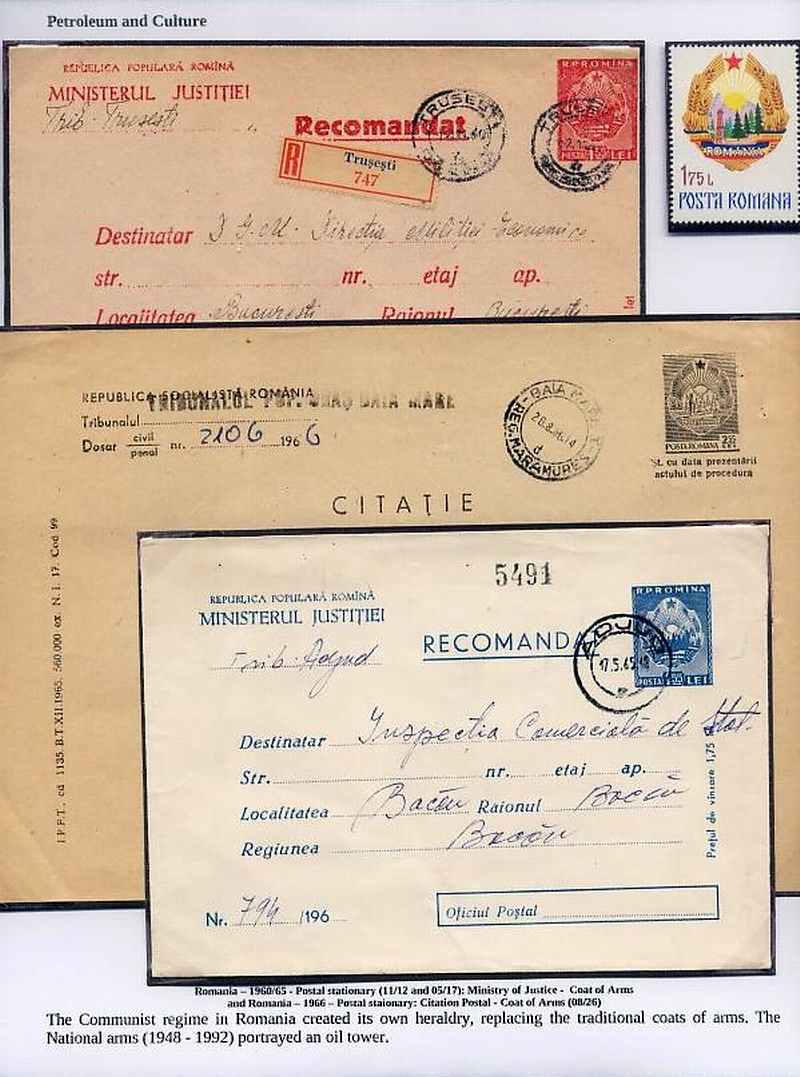 Petroleum and Culture
REPUBLICA POPULARĂ ROMÎNĂ
MINISTERUL JUSTIȚIEI
Trib. Trusesti
Recomandat
TRUSEȘTI
R
Trușești
747
R.P.ROMINA
POSTA
LEI
ROMANIA
1,75 L
POSTA ROMANA
Destinatar D.G.M. Direcția Miliției Economice
str. nr. etaj ap.
Localitatea Bucuresti Raionul Bucuresti
REPUBLICA SOCIALISTĂ ROMÂNIA
TRIBUNALUL POP. ORAȘ BAIA MARE
Tribunalul
Dosar civil penal nr. 2106 1966
BAIA MARE
REG. MARAMUREȘ
d
POSTA ROMANA
Șt. cu data prezentării
actului de procedura
CITAȚIE
I.P.F.T., cd 1135. B.T.XII.1965. 560.000 ex. N. I. 17. Cod 99
5491
REPUBLICA POPULARĂ ROMÎNĂ
MINISTERUL JUSTIȚIEI
Trib. Adjud
RECOMANDA
ADJUD
17.5.65
R.P.ROMINA
POSTA
LEI
Destinatar Inspectia Comercială de Stat.
Str. nr. etaj ap.
Localitatea Bacău Raionul Bacău
Regiunea Bacău
Prețul de vînzare 1,75
Nr. 794 /196
Oficiul Poștal
Romania – 1960/65 - Postal stationary (11/12 and 05/17): Ministry of Justice - Coat of Arms
and Romania – 1966 – Postal staionary: Citation Postal - Coat of Arms (08/26)
The Communist regime in Romania created its own heraldry, replacing the traditional coats of arms. The
National arms (1948 - 1992) portrayed an oil tower.